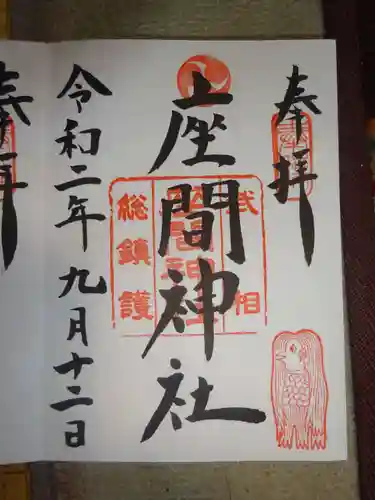 奉拝
武相
座間神社
総鎮護
令和二年九月十二日
奉拝